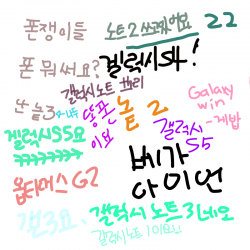 폰쟁이들
노트2 쓰고있어요 22
폰 뭐써요?
겔럭시S4!
갤럭시노트
난 놑3
똥폰
이요
놑 2
Galaxy
win
-계밥
겔럭시S5요
갤럭시
S5
베가
아이언
옵티머스G2
갤3요
갤럭시 노트3네오
갤럭시노트1이요